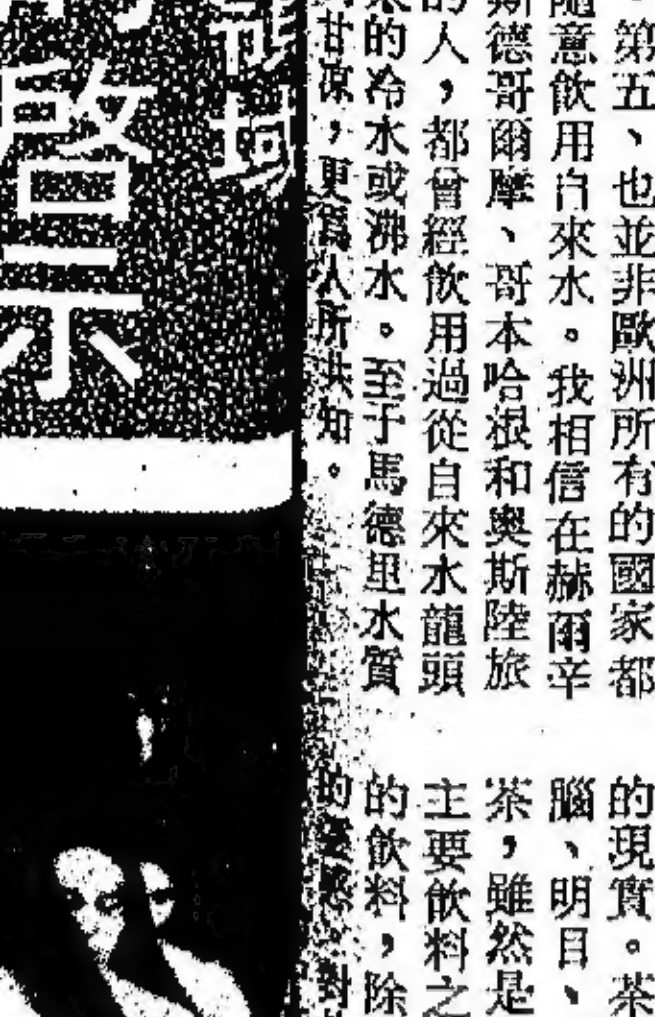 。第五、也並非歐洲所有的國家都
隨意飲用自來水。我相信在赫爾辛
斯德哥爾摩、哥本哈根和奧斯陸旅
的人，都曾經飲用過從自來水龍頭
來的冷水或沸水。至于馬德里水質
甘凉，更爲人所共知。
的現實。茶
腦、明目、
茶，雖然是
主要飲料之
的飲料，除
的
啓示